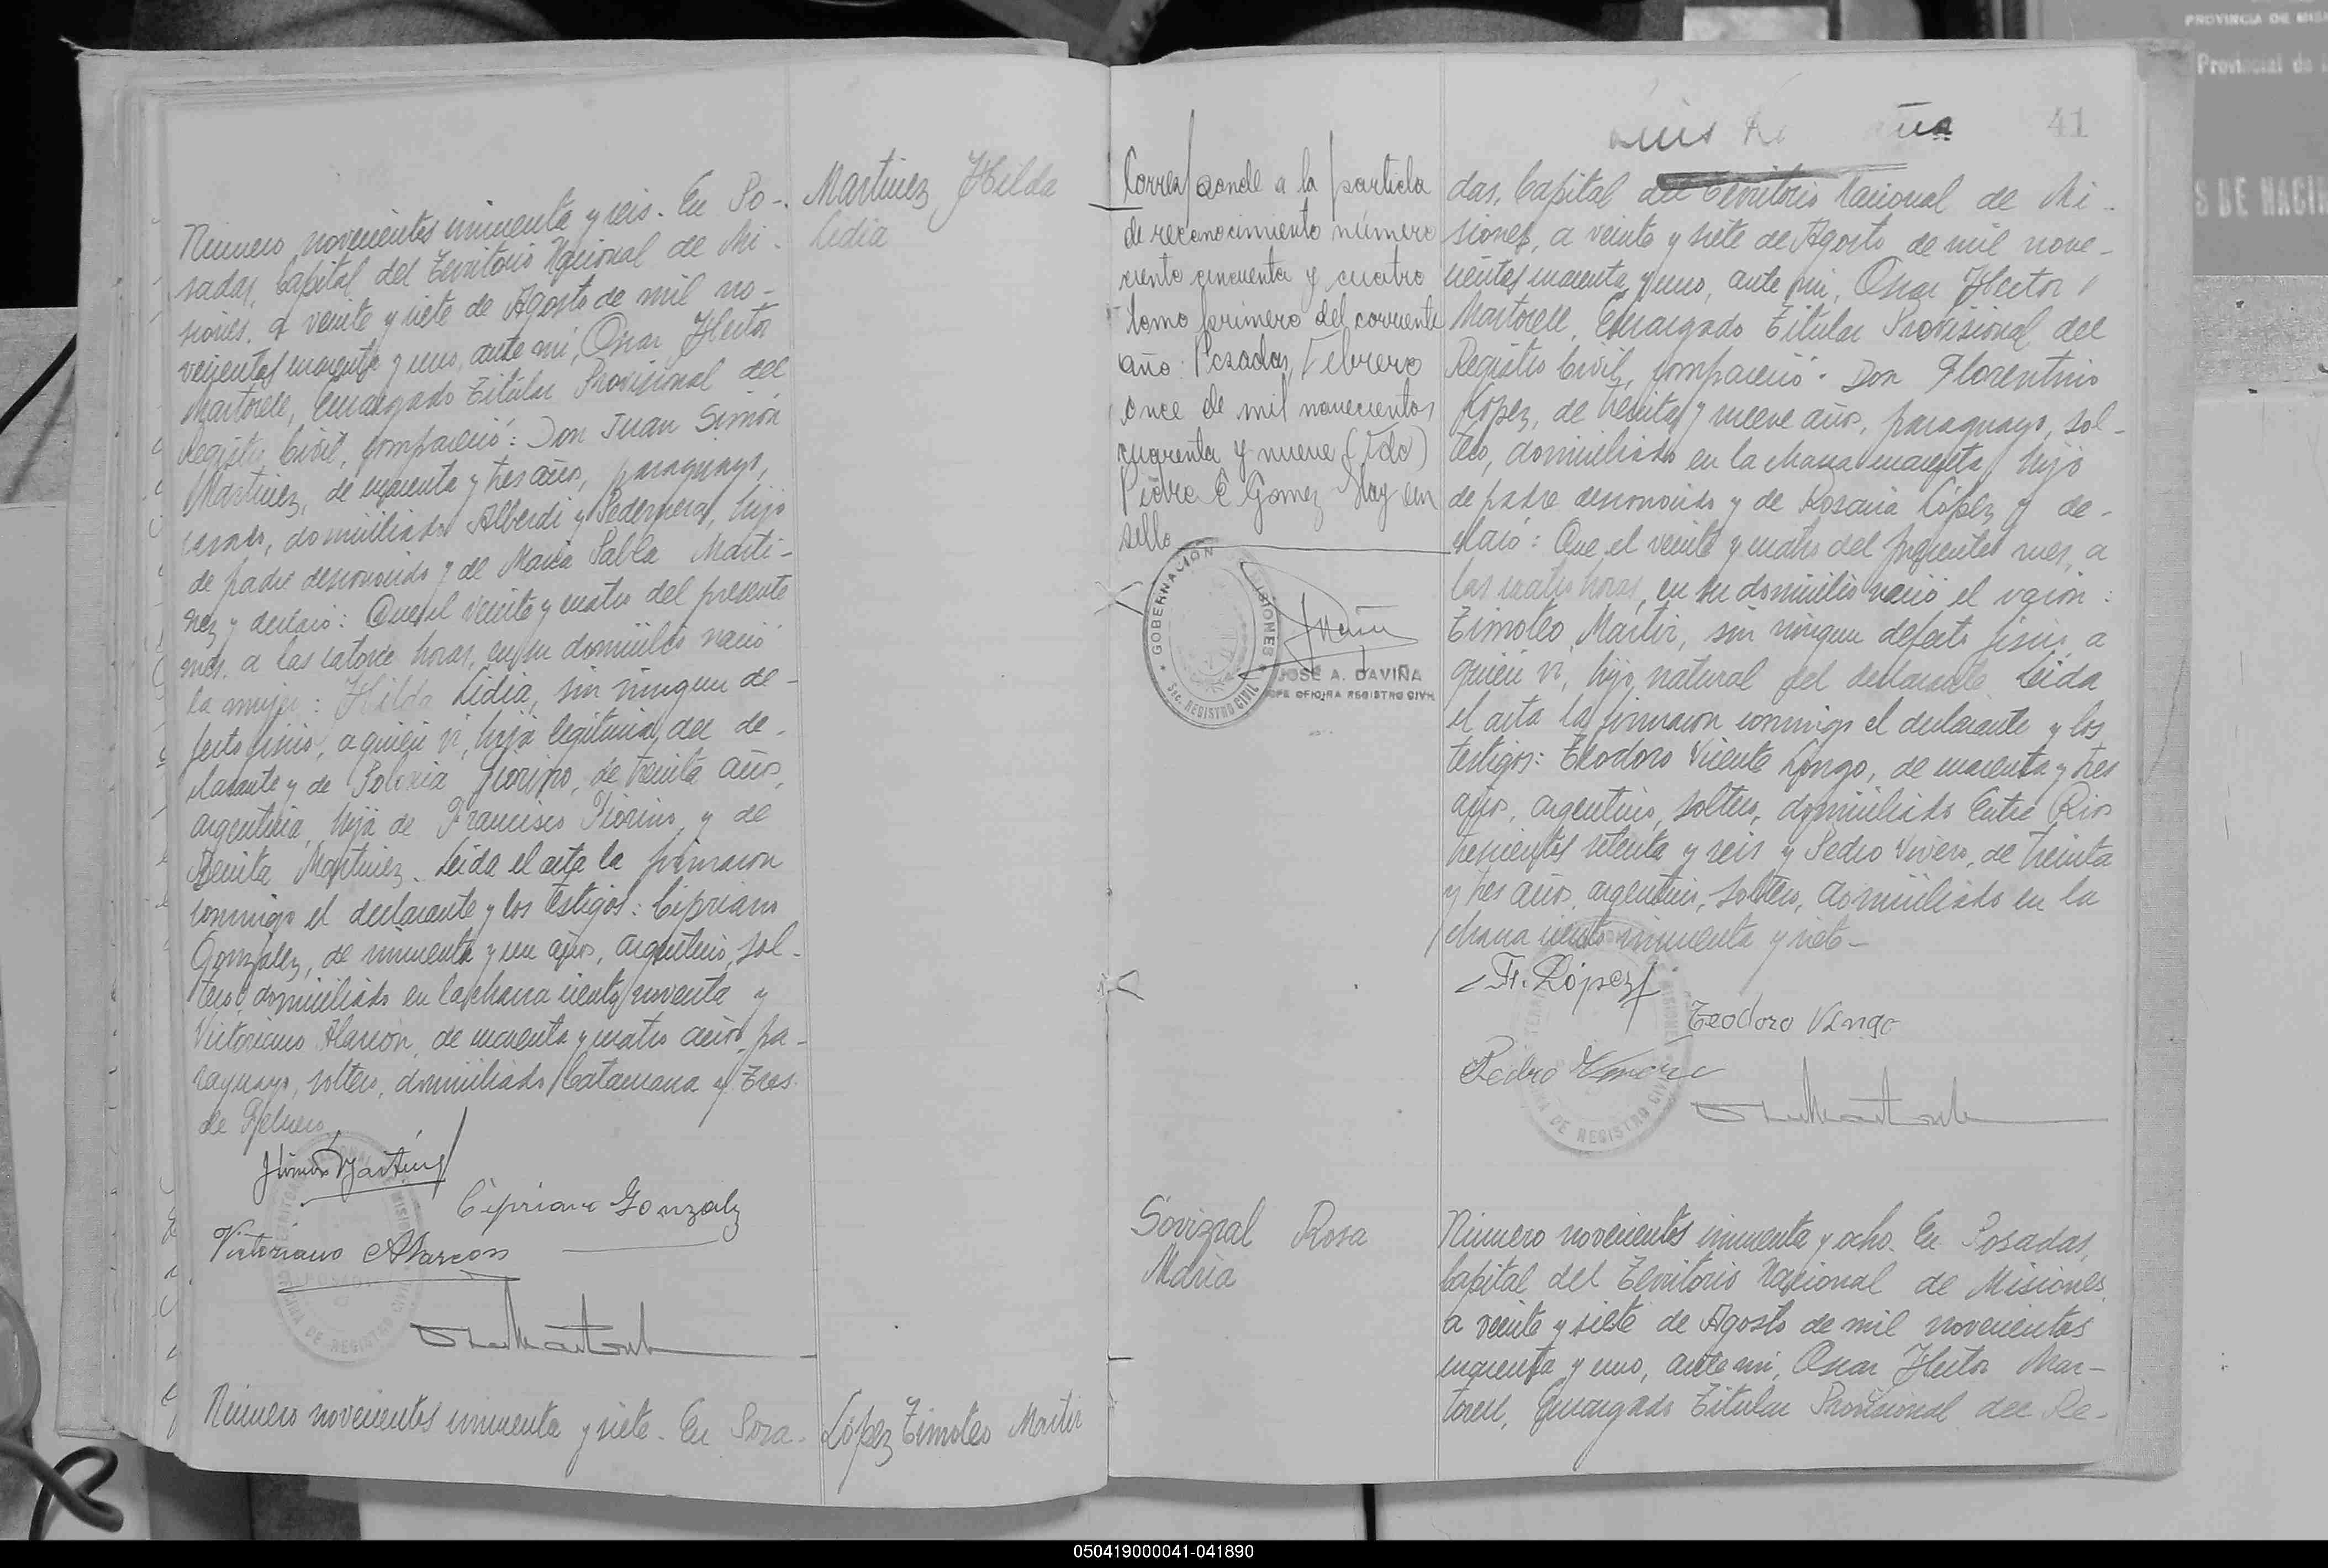 Número novecientos cincuenta y seis. En Po-
sadas, Capital del Territorio Nacional de Mi-
siones, a veinte y siete de Agosto de mil no-
vecientos cuarenta y uno, ante mi, Oscar Hector
Martorell, Encargado Titular Provisional del
Registro Civil, compareció: Don Juan Simón
Martinez, de cuarenta y tres años, paraguayo,
casado, domiciliado Alberdi y Pedernera, hijo
de padre desconocido y de María Pabla Marti-
nez y declaró: Que el veinte y cuatro del presente
mes, a las catorce horas, en su domicilio nació
la mujer: Hilda Lidia, sin ningun de-
fecto fisico, a quien vi, hija legitima del de-
clarante y de Polonia Fiorino, de treinta años,
argentina, hija de Francisco Fiorino, y de
Benita Martinez. Leida el acta la firmaron
conmigo el declarante y los testigos: Cipriano
González, de cincuenta y un años, argentino, sol-
tero, domiciliado en la chacra ciento noventa y
Victoriano Alarcón, de cuarenta y cuatro años, pa-
raguayo, soltero, domiciliado Catamarca y Tres
de Febrero.
Simón Martinez
Cipriano Gonzalez
Victoriano Alarcon
Número novecientos cincuenta y siete. En Posa-
Martinez Hilda
Lidia
López Timoteo Martir
Corresponde a la partida
de reconocimiento número
ciento cincuenta y cuatro
tomo primero del corriente
año. Posadas, Febrero
once de mil novecientos
cuarenta y nueve (Fdo)
Pedro E Gomez Hay un
sello
GOBERNACIÓN MISIONES
Sec. REGISTRO CIVIL
JOSÉ A. DAVIÑA
JEFE OFICINA REGISTRO CIVIL
Sovizral Rosa
María
Luis
41
das, Capital del Territorio Nacional de Mi-
siones, a veinte y siete de Agosto de mil nove-
cientos cuarenta y uno, ante mi, Oscar Hector
Martorell, Encargado Titular Provisional del
Registro Civil, compareció: Don Florentino
López, de treinta y nueve años, paraguayo, sol-
tero, domiciliado en la chacra cuarenta, hijo
de padre desconocido y de Rosaria López y de-
claró: Que el veinte y cuatro del presente mes, a
las cuatro horas, en su domicilio nació el varón:
Timoteo Martir, sin ningun defecto fisico, a
quien vi, hijo natural del declarante. Leida
el acta la firmaron conmigo el declarante y los
testigos: Teodoro Vicente Longo, de cuarenta y tres
años, argentino, soltero, domiciliado Entre Rios
trescientos setenta y seis y Pedro Vivero, de treinta
y tres años, argentino, soltero, domiciliado en la
chacra ciento cincuenta y siete-
F. López
Teodoro V Longo
Pedro
Número novecientos cincuenta y ocho. En Posadas,
Capital del Territorio Nacional de Misiones,
a veinte y siete de Agosto de mil novecientos
cuarenta y uno, ante mi, Oscar Hector Mar-
torell, Encargado Titular Provisional del Re-
PROVINCIA DE MIS
Provincial de
S DE NACIM
050419000041-041890